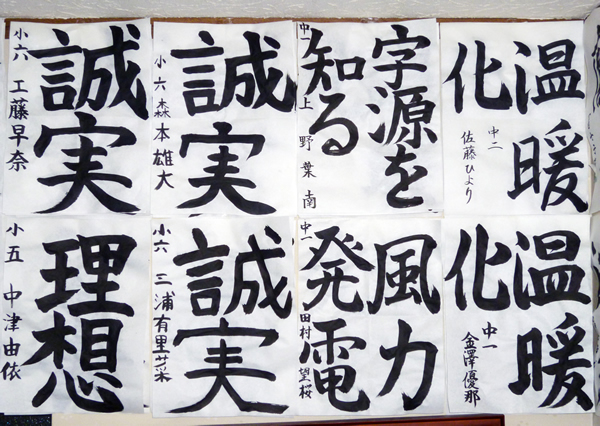 誠実
小六 工藤早奈
誠実
小六 森本雄大
字源を
知る
中一 上野葉南
温暖
化
中二 佐藤ひより
理想
小五 中津由依
誠実
小六 三浦有里菜
風力
発電
中一 田村望桜
温暖
化
中一 金澤優那